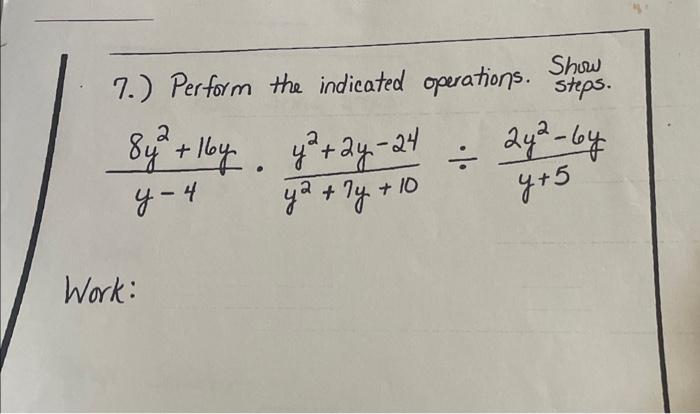 7.) Perform the indicated operations. Show steps.
8y² + 16y / y - 4 · y² + 2y - 24 / y² + 7y + 10 ÷ 2y² - 6y / y + 5
Work: